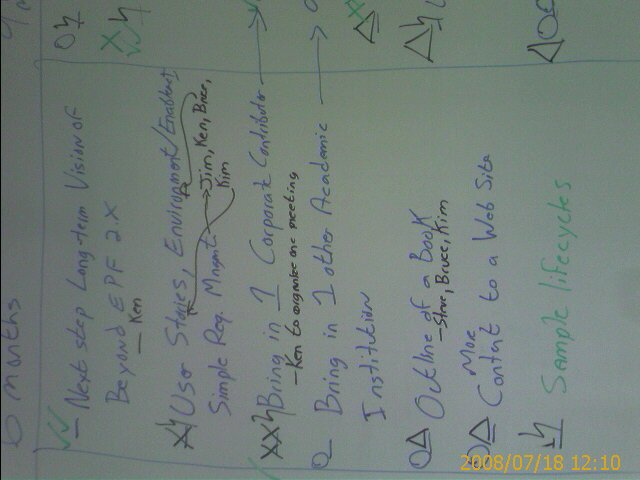 6 months
Next step Long-term Vision of
Beyond EPF 2.X
— Ken
User Stories, Environment/Enablement
Simple Req. Mngmt.
Jim, Ken, Bruce,
Kim
Bring in 1 Corporate Contributor
— Ken to organize one meeting
Bring in 1 other Academic
Institution
Outline of a Book
— Steve, Bruce, Kim
More
Content to a Web Site
Sample lifecycles
2008/07/18 12:10